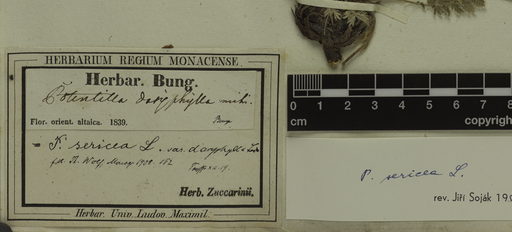 HERBARIUM REGIUM MONACENSE
Herbar. Bung.
Potentilla dasyphylla mihi.
Flor. orient. altaica. 1839.
Bung.
P. sericea L. var. dasyphylla
Th. Wolf Monogr 1908.
Herb. Zuccarinii.
Herbar. Univ. Ludov. Maximil.
0 1 2 3 4 5 6 7 8
cm copyright
P. sericea L.
rev. Jiří Soják 19